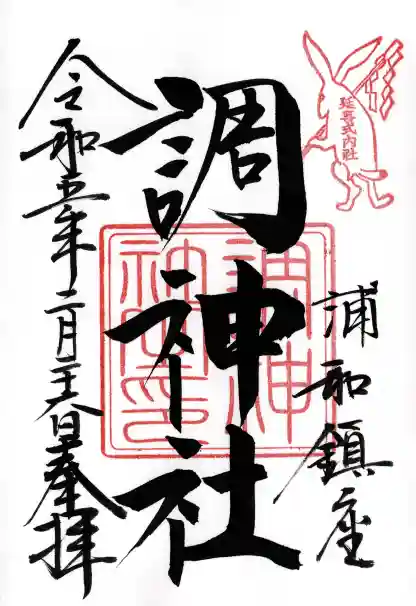 延喜式内社
浦和鎮座
調神社
調神社之印
令和五年二月二十六日奉拝